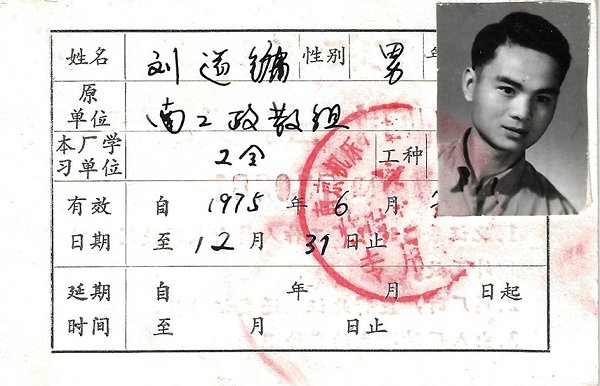 姓名 刘道镛 性别 男 年
原单位 南工政教组
本厂学习单位 工会 工种
有效日期 自 1975 年 6 月
至 12 月 31 日止
延期时间 自 年 月 日起
至 月 日止
专用